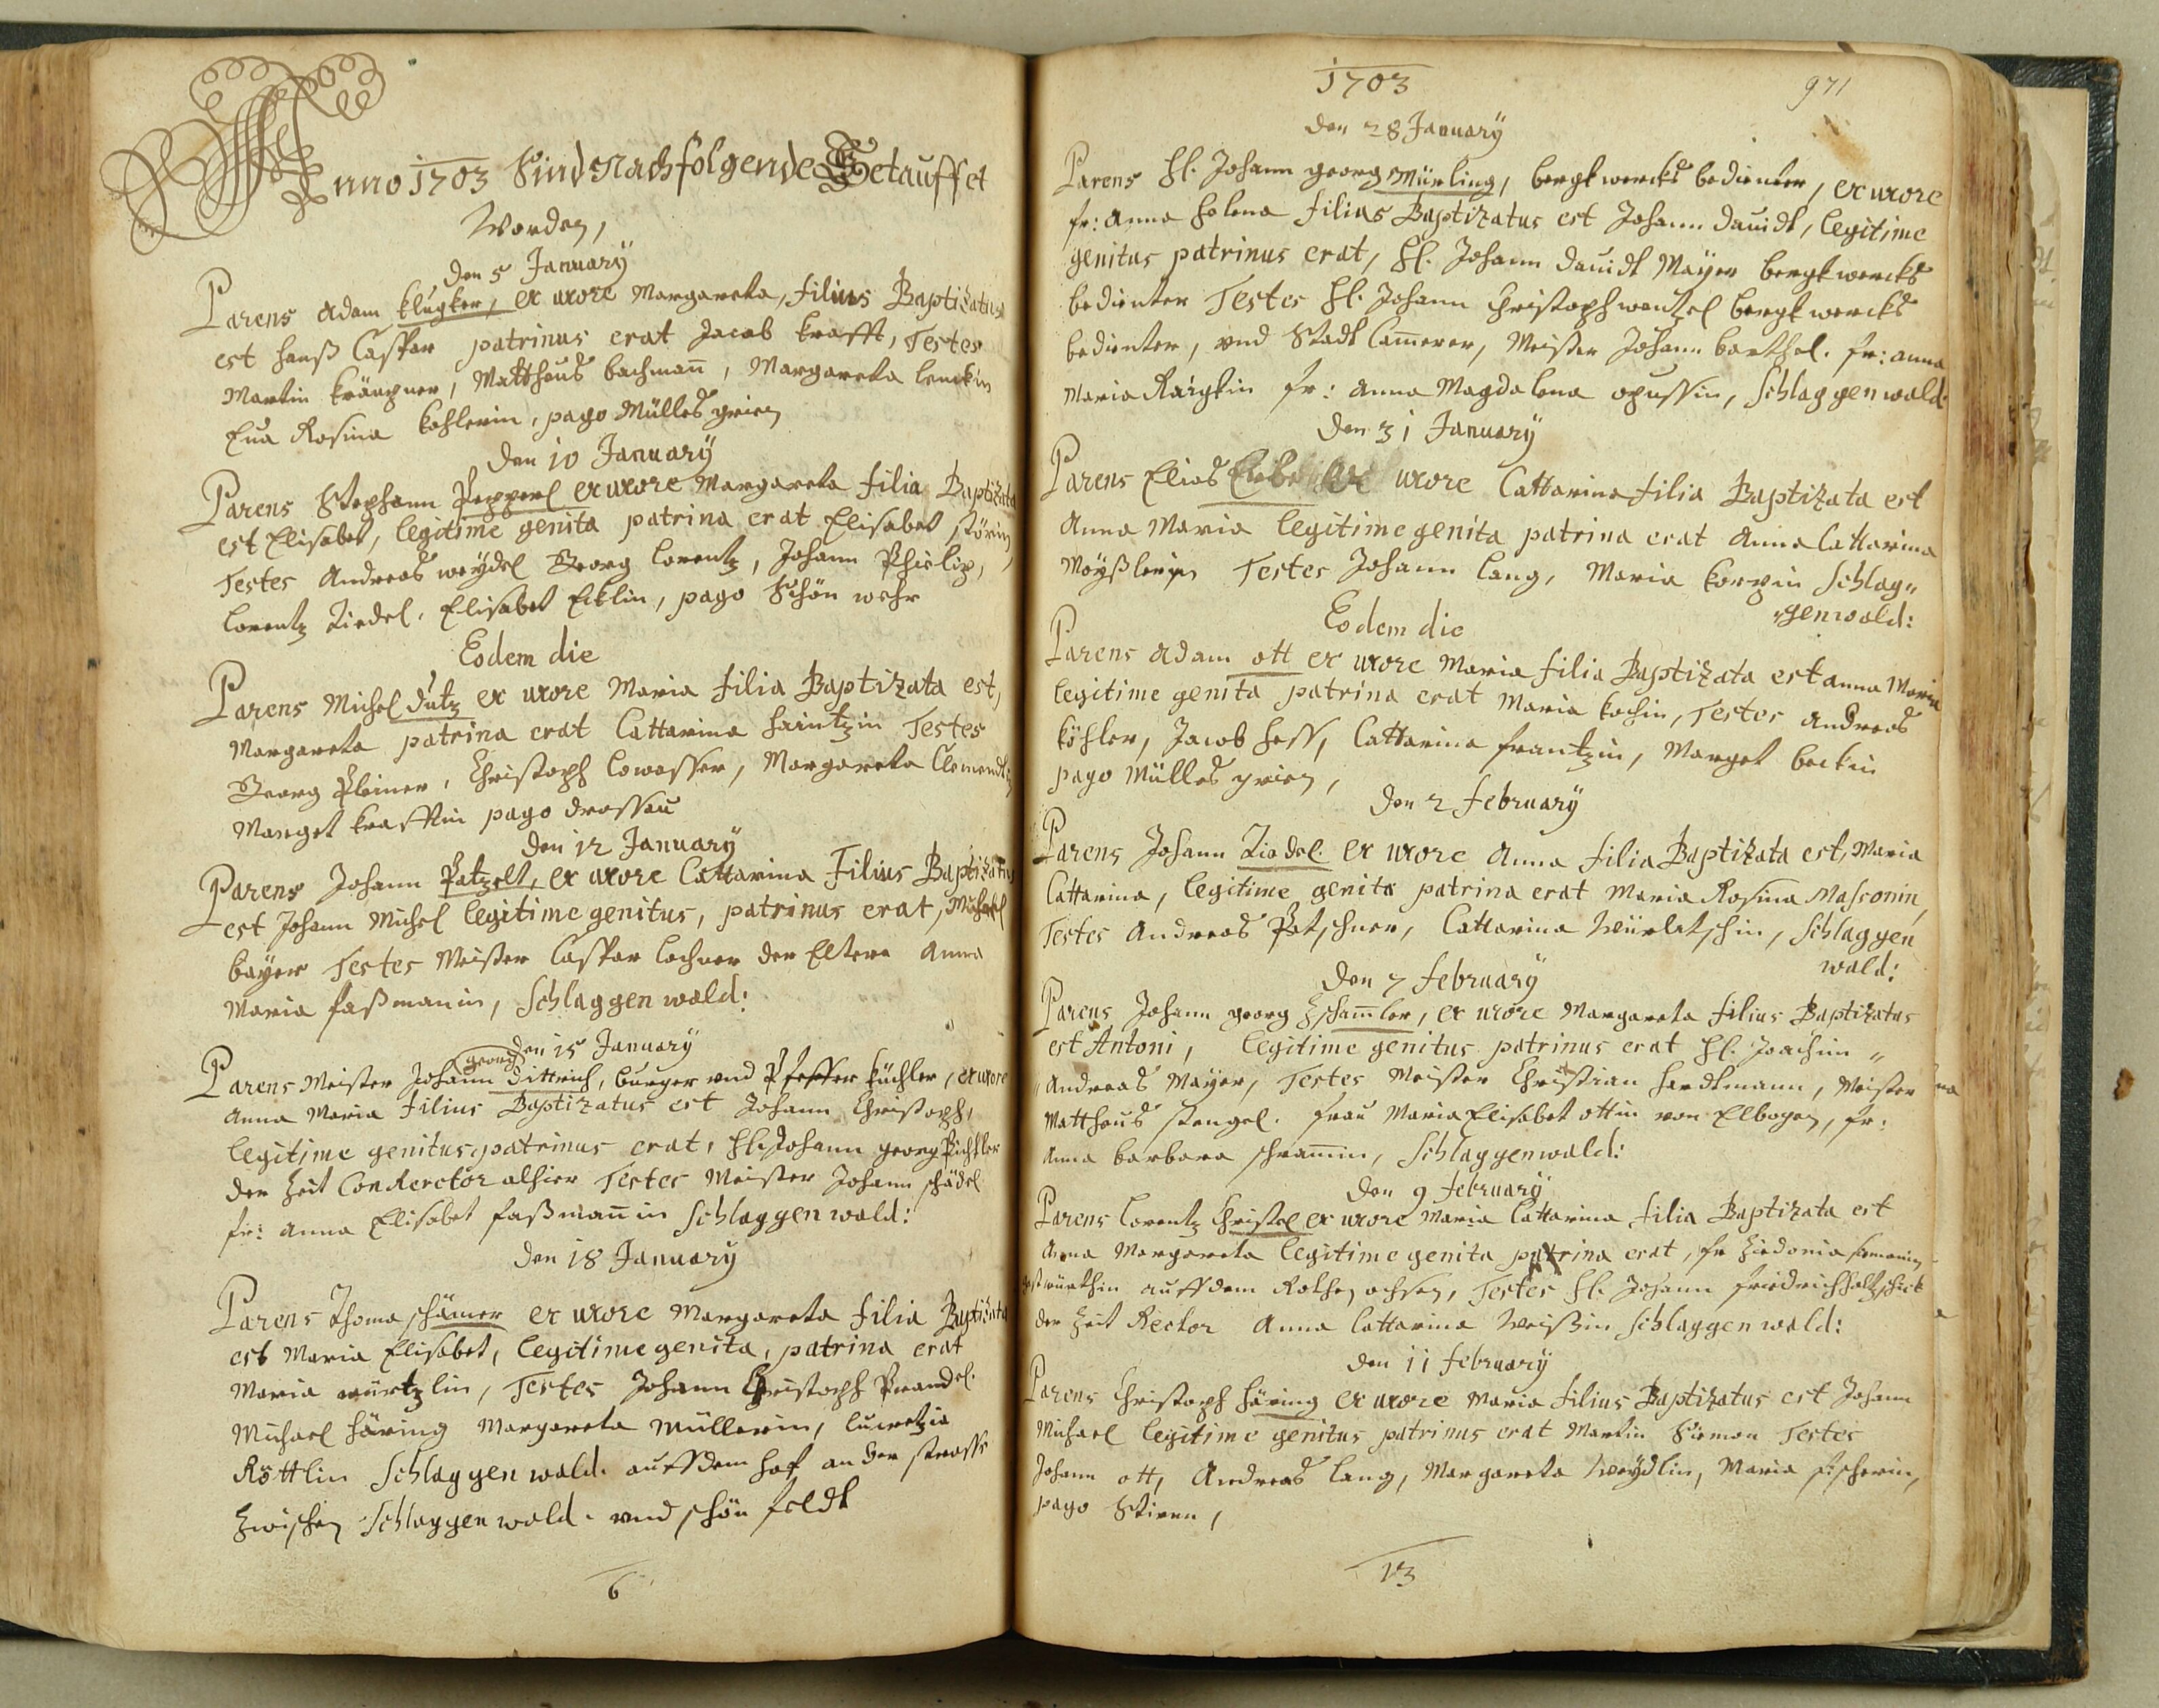 Anno 1703 Sind Nachfolgende Getauffet
Worden,
den 5 January
Parens Adam Klugker, ex uxore Margareta, filius Baptizatus
est Hanß Caspar patrinus erat Jacob Krafft, Testes
Martin, Mattheus Bachman̅, Margareta Lenckin
Eua Rosina Kohlerin, pago Müllesgrien
den 10 January
Parens Stephann Pepperl ex uxore Margareta filia Baptizata
est Elisabet, legitime genita patrina erat Elisabet Störin,
Testes Andreas Weÿdel Georg Lorentz, Johann Philip,
Lorentz Riedel, Elisabet Ecklin, pago Schön wehr
Eodem die
Parens Michel Dutz ex uxore Maria filia Baptizata est,
Margareta patrina erat Cattarina Haintzin Testes
Georg Pleiner, Christoph Lowasser, Margareta
Marget Krafftin pago Drossau
den 12 January
Parens Johann Patzelt, ex uxore Cattarina Filius Baptizatus
est Johann Michel legitime genitus, patrinus erat, Michael
Bayer Testes Meister Caspar Lochner der Eltere Anna
Maria Faßmanin, Schlaggenwald:
den 15 January
georg
Parens Meister Johann Dittrich, burger vnd Pfeffer Küchler, ex uxore
Anna Maria filius Baptizatus est Johann Christoph,
legitime genitus, patrinus erat, Hl: Johann georg Pichtler
der Zeit Conrector alhier Testes Meister Johann Schädel
fr: Anna Elisabet Faßman̅in Schlaggenwald:
den 18 January
Parens Thoma Schämer ex uxore Margareta filia Baptizata
est Maria Elisabet, legitime genita, patrina erat
Maria Würtzlin, Testes Johann Christoph Prandel
Michael Häring Margareta Müllerin, Lucretzia
Röttlin Schlaggenwald. auff dem Hof an der strasse
Zwischen Schlaggenwald. und schön feldt
6
1703
971
den 28 January
Parens Hl. Johann georg Mürling, bergkwercks bedienter, ex uxore
fr: Anna Helena filius Baptizatus est Johann Dauidt, legitime
genitus patrinus erat, Hl. Johann Dauidt Mayer bergkwercks
bedienter Testes Hl. Johann Christoph Wentzel bergkwercks
bedienter, vnd Stadt Cam̅erer, Meister Johann Barthel. fr: Anna
Maria fr: Anna Magdalena, Schlaggenwald:
den 31 January
Parens Elias ex uxore Cattarina filia Baptizata est
Anna Maria legitime genita patrina erat Anna Cattarina
Testes Johann Lang, Maria Schlag„
„genwald:
Eodem die
Parens Adam Ott ex uxore Maria filia Baptizata est Anna Maria
legitime genita patrina erat Maria Kochin, Testes Andreas
Köhler, Jacob Hess, Cattarina Frantzin, Marget Beckin
pago Müllesgrien,
den 2 february
Parens Johann Riedel ex uxore Anna filia Baptizata est, Maria
Cattarina, legitime genita patrina erat Maria Rosina Masconin,
Testes Andreas Petschner, Cattarina, Schlaggen
wald:
den 7 february
Parens Johann georg Zscham̅ler, ex uxore Margareta filius Baptizatus
est Antoni, legitime genitus patrinus erat Hl. Joachim „
„Andreas Mayer, Testes Meister Christian Hardtmann, Meister
Mattheus Stengel. frau Maria Elisabet Ottin von Elbogen, fr:
Anna Barbara Schram̅in, Schlaggenwald:
den 9 february
Parens Lorentz Christel ex uxore Maria Cattarina filia Baptizata est
Anna Margareta legitime genita patrina erat, fr
gastwürthin auff dem Rothen ochsen, Testes Hl. Johann Friedrich
der Zeit Rector Anna Cattarina Weißin Schlaggenwald:
den 11 february
Parens Christoph Häring ex uxore Maria filius Baptizatus est Johann
Michael legitime genitus patrinus erat Martin Siemon Testes
Johann Ott, Andreas Lang, Margareta Weÿdlin, Maria Fischerin,
pago Stirn,
13